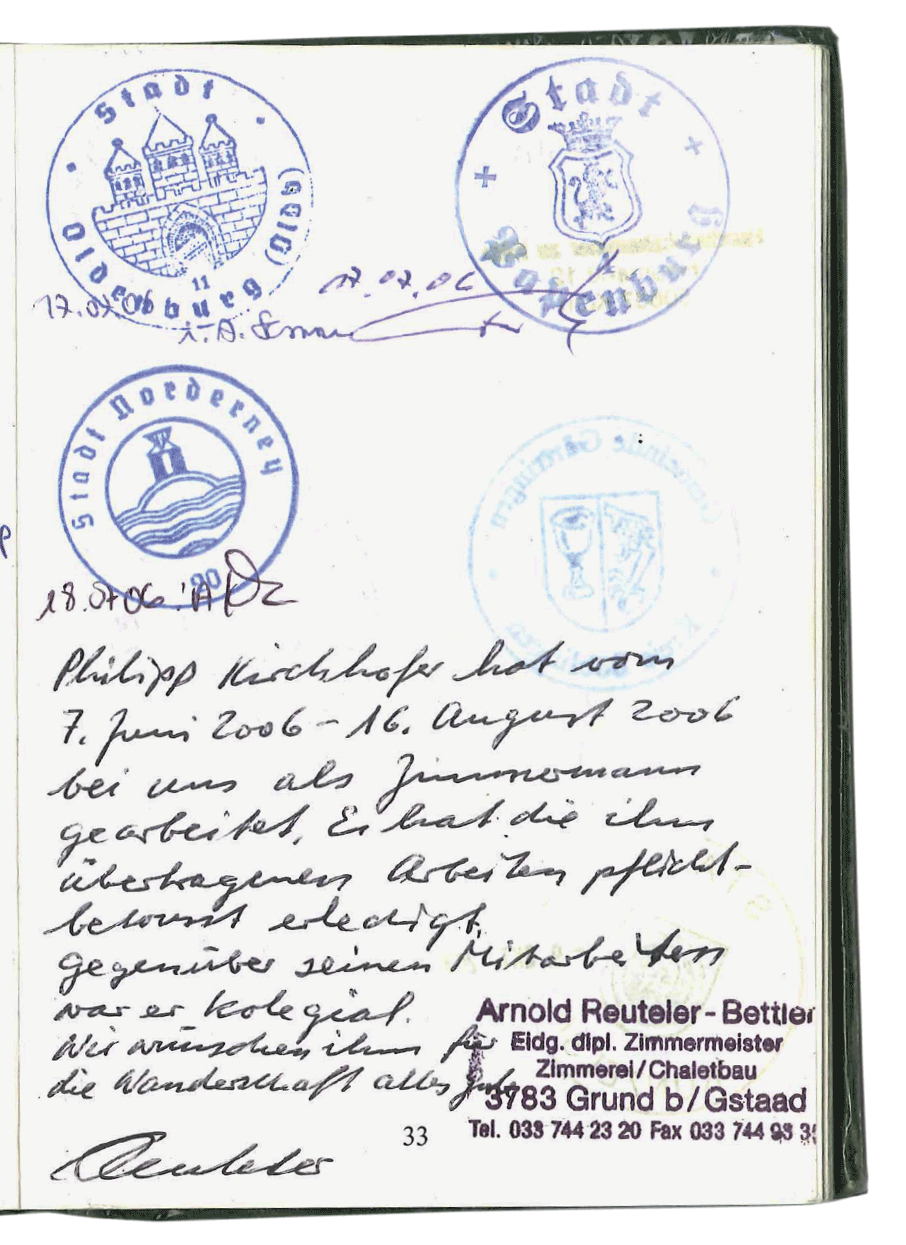 Stadt
Oldenburg (Oldb)
11
17.07.06
i.A.
Stadt
Papenburg
17.07.06
Stadt Norderney
20
18.07.06
Gemeinde Gärtringen
Philipp Kirchhofer hat vom
7. Juni 2006 - 16. August 2006
bei uns als Zimmermann
gearbeitet. Er hat die ihm
übertragenen Arbeiten pflicht-
bewusst erledigt.
Gegenüber seinen Mitarbeitern
war er kolegial.
Wir wünschen ihm für
die Wanderschaft alles gute
Arnold Reuteler-Bettler
Eidg. dipl. Zimmermeister
Zimmerei/Chaletbau
3783 Grund b/Gstaad
Tel. 033 744 23 20 Fax 033 744 93 3
33
Reuteler